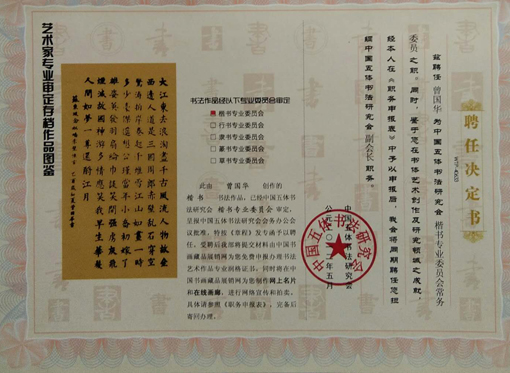 聘任决定书
兹聘任 曾国华 为中国五体书法研究会 楷书专业委员会常务
委员 之职。同时，鉴于您在书体艺术创作及研究领域之成就，
经本人在《职务申报表》中予以申报后，我会将同期聘任您担
中国五体书法研究会 副会长 职务。
中国五体书法研究会
公元二〇一二年五月
中国五体书法研究会
书法作品经以下专业委员会审定
楷书专业委员会
行书专业委员会
隶书专业委员会
篆书专业委员会
草书专业委员会
此由 曾国华 创作的
楷书 书法作品，已经中国五体书
法研究会 楷书专业委员会 审定，
呈报中国五体书法研究会会务办公会
议批准，特按《章程》发专函予以聘
任。受聘后我部将提交材料由中国书
画藏品展销网为您免费申报办理书法
艺术作品专业润格证书，同时将在中
国书画藏品展销网为您制作网上名片
和在线画廊，进行网络宣传和拍卖。
具体请参照《职务申报表》，完备后
寄回办理。
艺术家专业审定存档作品图鉴
大江東去浪淘盡千古風流人物故壘
西邊人道是三國周郎赤壁亂石穿空
驚濤拍岸卷起千堆雪江山如畫一時
多少豪傑遥想公瑾當年小喬初嫁了
雄姿英發羽扇綸巾談笑間强虜灰飛
煙滅故國神游多情應笑我早生華髮
人間如夢一尊還酹江月